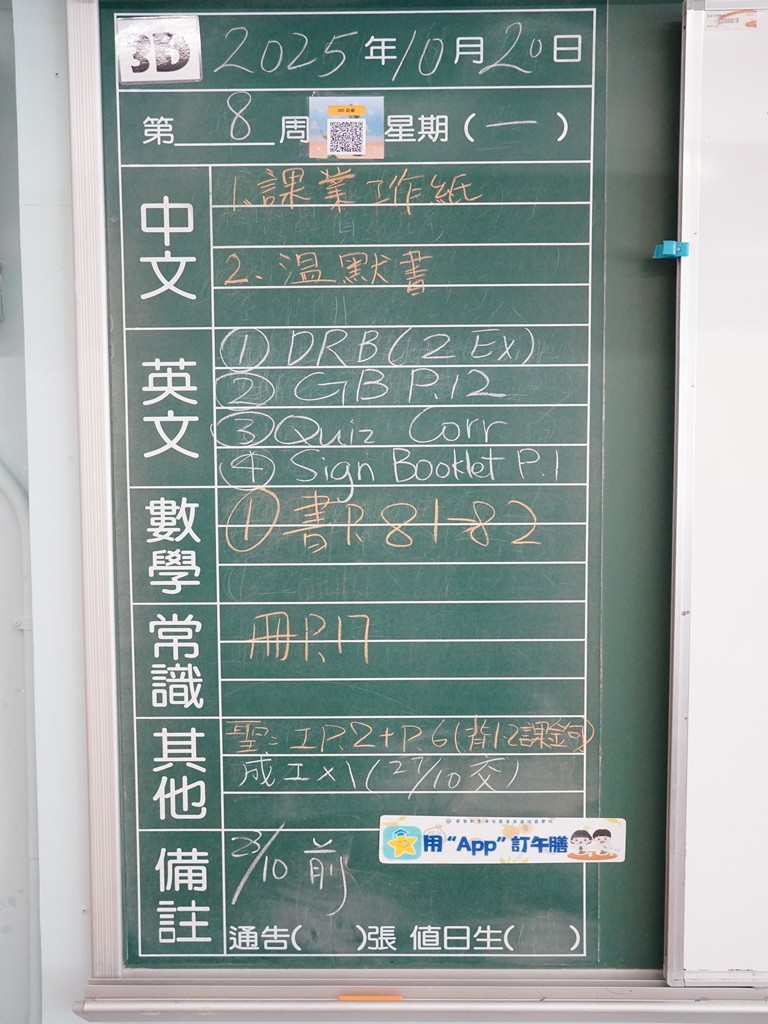 3D 2025年10月20日
第8周 星期(一)
中文
1.課業工作紙
2.溫默書
英文
① DRB(2 Ex)
② GB P.12
③ Quiz Corr
④ Sign Booklet P.1
數學
① 書P.81-82
常識
冊P.17
其他
聖：工P.2+P.6(背1-2課金句)
成工x1(27/10交)
備註
用“App”訂午膳
23/10前
通告( )張 值日生( )